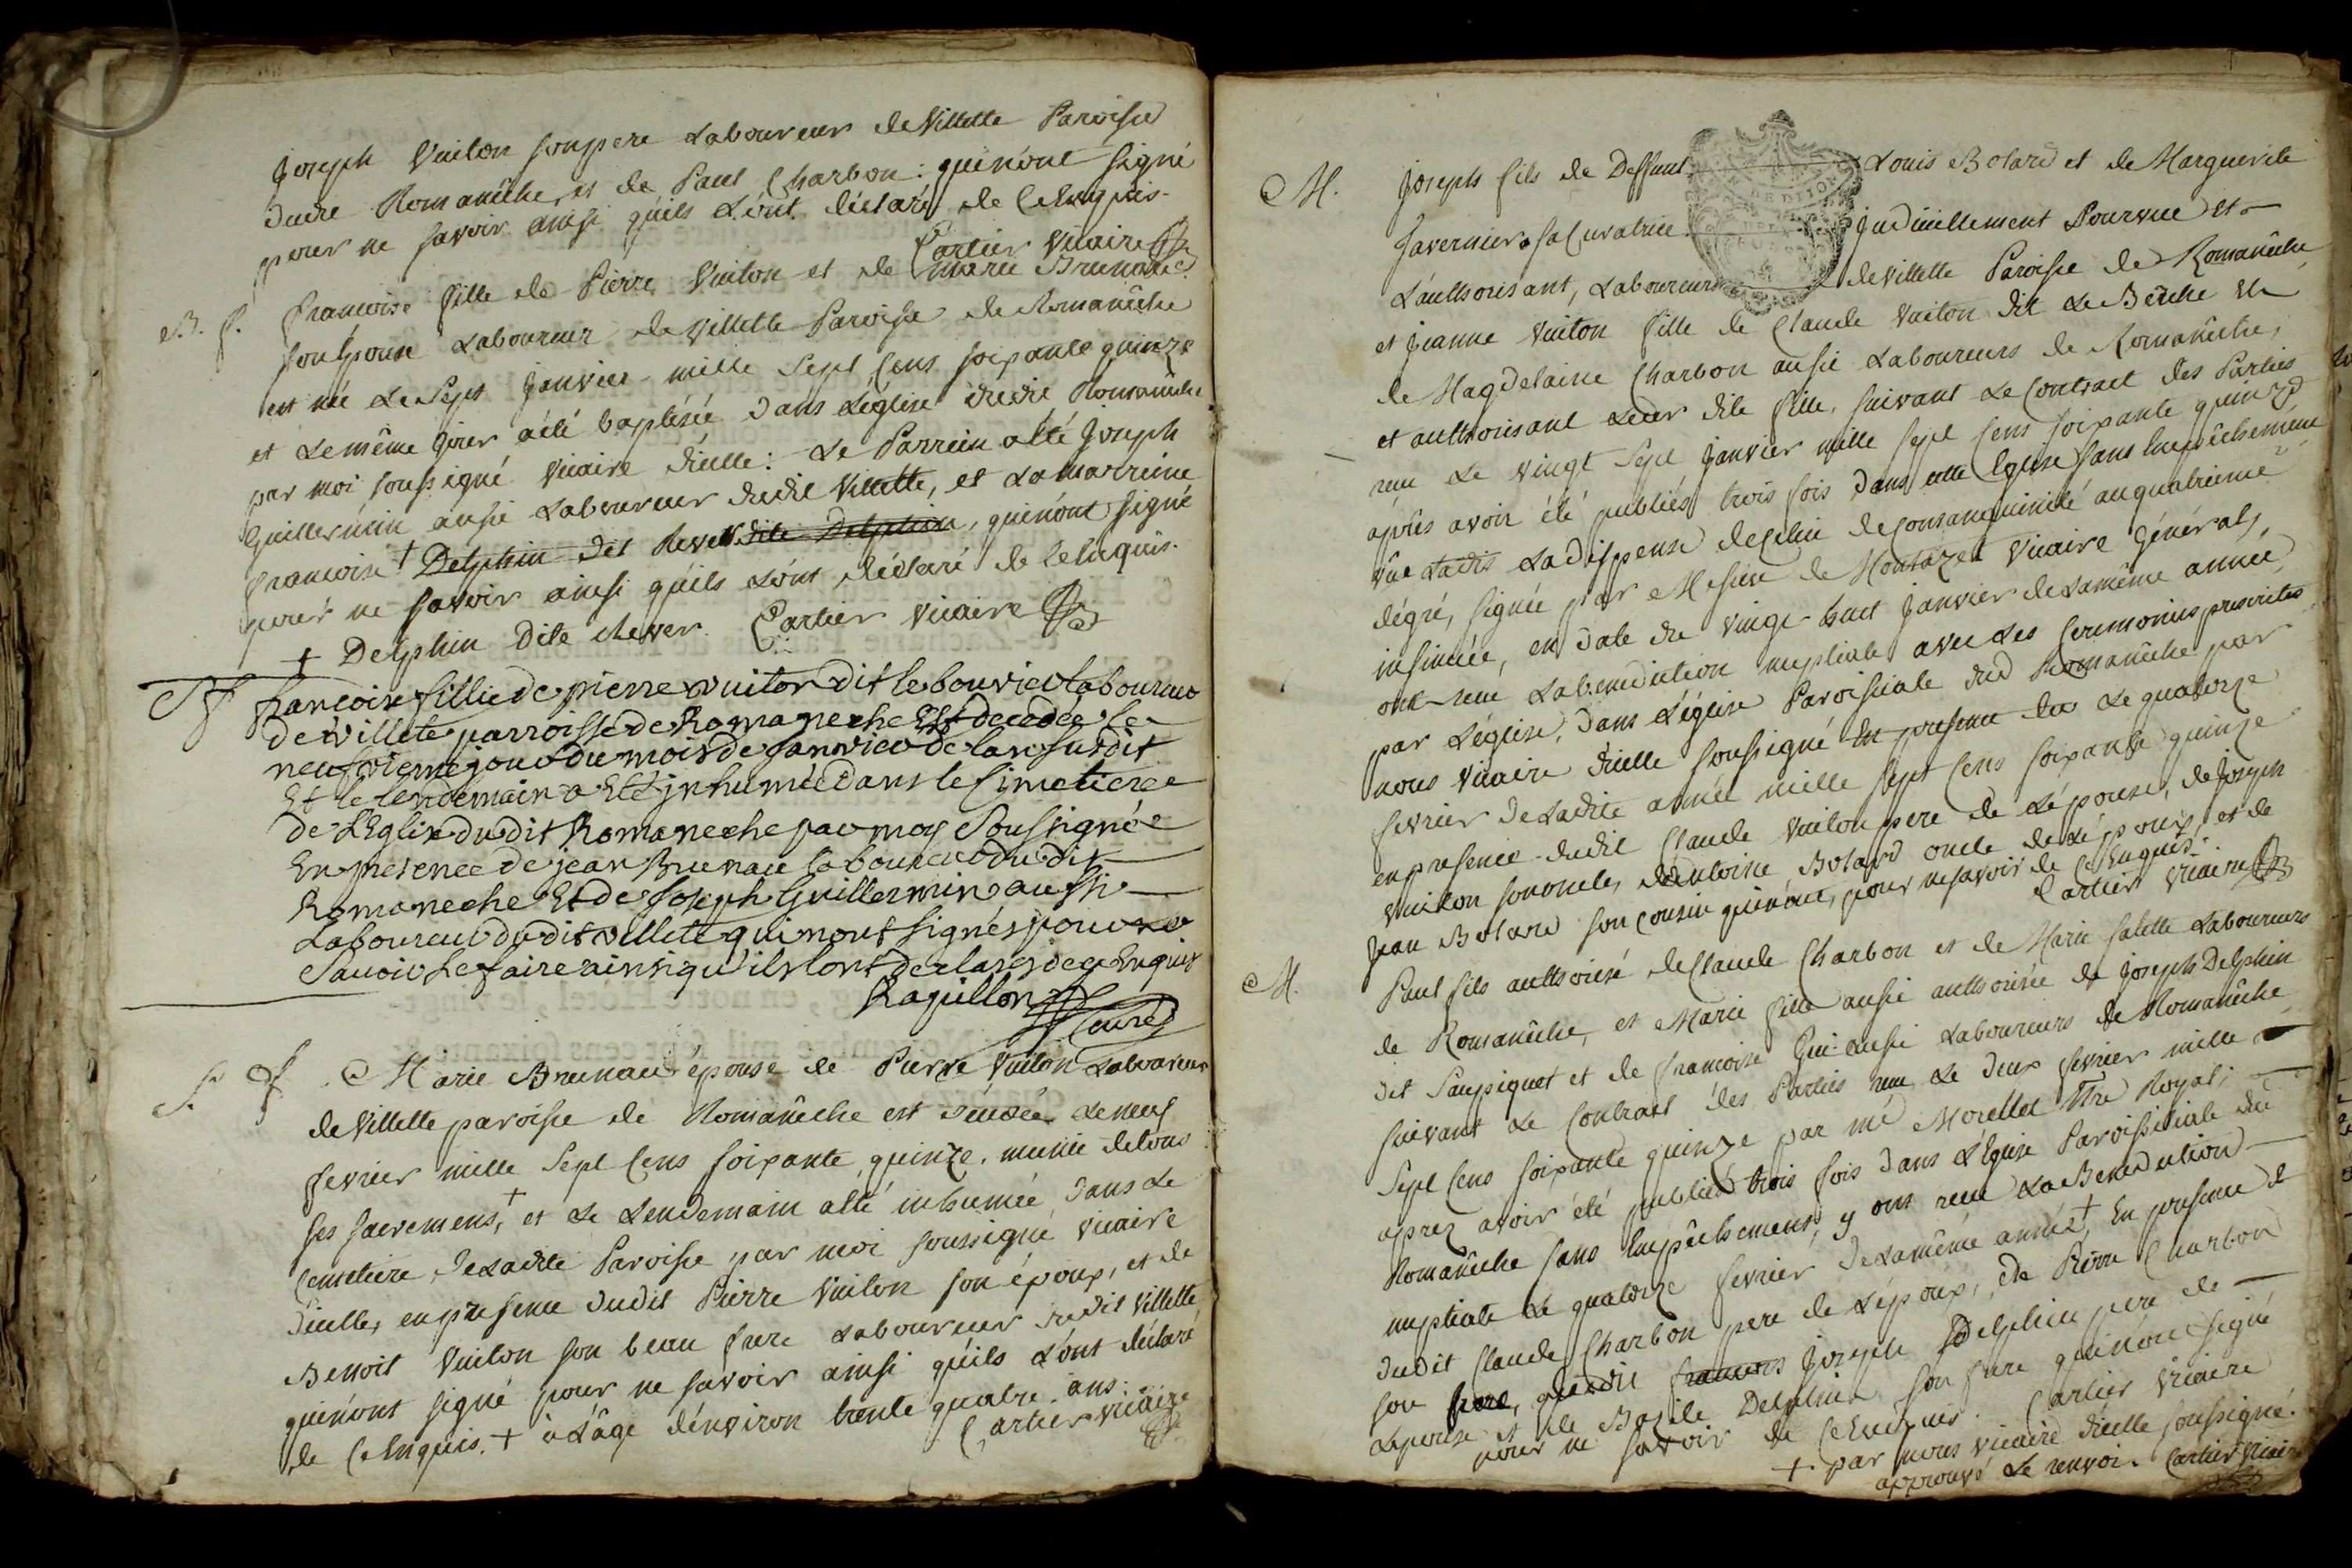 Joseph Vuiton son pere Laboureur de Villette Paroisse
dudit Romanêche, et de Paul Charbon: qui n'ont signé
pour ne savoir ainsi qu'ils L'ont déclaré de Ce Enquis.
Cartier Vicaire
B. f. francoise fille de Pierre Vuiton et de Marie Brunau
son Epouse Laboureur de Villette Paroisse de Romanêche
est née Le Sept Janvier mille Sept Cens soixante quinze
et Le même Jour a été baptisée dans L'église dudit Romanêche
par moi soussigné Vicaire d'icelle: Le Parrein a été Joseph
Guillermin aussi Laboureur dudit Villette, et La marreine
francoise + Delphin dit Rever dite Delphin, qui n'ont signé
pour ne savoir ainsi qu'ils L'ont déclaré de Ce Enquis.
+ Delphin dite chever. Cartier Vicaire
francoise fillie de pierre vuiton dit le bouvier laboureur
de villete parroisse de Romaneche Est decedée le
neufvieme jour du mois de Janvier de lan susdit
Et le lendemain a Eté jnhumée dans le Simetiere
de L'Eglise dudit Romaneche par moy Soussigné
En presence de jean Brunau laboureur dudit
Romaneche Et de Joseph Guillermin aussi
Laboureur dudit villete qui nont signés pour ne
Savoir Le faire ainsi qu'ils lont declarés de ce Enquis
Rapillon
Curé
S. f. Marie Brunau épouse de Pierre Vuiton Laboureur
de Villette paroisse de Romanêche est décédée Le neuf
fevrier mille Sept Cens soixante quinze, munie de tous
ses sacremens, + et Le Lendemain a été inhumée dans Le
Cemetiere de Ladite Paroisse par moi soussigné Vicaire
d'icelle, en presence dudit Pierre Vuiton son époux, et de
Benoit Vuiton son beau frere Laboureur dudit Villette
qui n'ont signé pour ne savoir ainsi qu'ils L'ont déclaré
de Ce Enquis. + à L'âge d'environ trente quatre ans.
Cartier Vicaire
M. Joseph fils de Deffunt Louis Bolard et de Marguerite
Javernier sa Curatrice Judiciellement Pourvue et
L'authorisant, Laboureur de Villette Paroisse de Romanêche
et Jeanne Vuiton fille de Claude Vuiton dit Le Bêche et
de Magdelaine Charbon aussi Laboureurs de Romanêche,
et authorisant Leur dite fille, suivant Le Contract des Parties
reçu Le vingt Sept Janvier mille Sept Cens soixante quinze
après avoir été publiés trois fois dans cette Eglise sans Empêchement
vûe Ladis La dispense de Celui de consanguinité au quatrieme
dégré, signée par Messire de Montazet Vicaire Général,
insinuée, en date du vingt huit Janvier de La même année,
ont reçu La benediction nuptiale avec Les Ceremonies prescrites
par L'église, dans L'église Paroissiale dud Romanêche par
nous Vicaire d'icelle soussigné En presence du Le quatorze
fevrier de Ladite année mille Sept Cens soixante quinze
en presence dudit Claude Vuiton pere de L'épouse, de Joseph
Vuiton son oncle, d'Antoine Bolard oncle de L'époux, et de
Jean Bolard son cousin qui n'ont, pour ne savoir de Ce Enquis.
Cartier Vicaire
M. Paul fils authorisé de Claude Charbon et de Marie salette Laboureurs
de Romanêche, et Marie fille aussi authorisée de Joseph Delphin
dit Paupiguet et de francoise Gui aussi Laboureurs de Romanêche
suivant Le Contract des Parties reçu Le deux fevrier mille
Sept Cens soixante quinze par me Morellet Ntre Royal;
aprez avoir été publiés trois fois dans L'Eglise Paroissiale du
Romanêche sans Empêchement, y ont reçu La Benediction
nuptiale Le quatorze fevrier de La même année +, En presence de
dudit Claude Charbon pere de L'époux, de Pierre Charbon
son frere, dudit francois Joseph Delphin pere de
L'epouse et de Basile Delphin son frere qui n'ont signé
pour ne savoir de Ce Enquis. Cartier Vicaire
+ par nous vicaire d'icelle soussigné.
approuvé Le renvoi. Cartier Vicaire